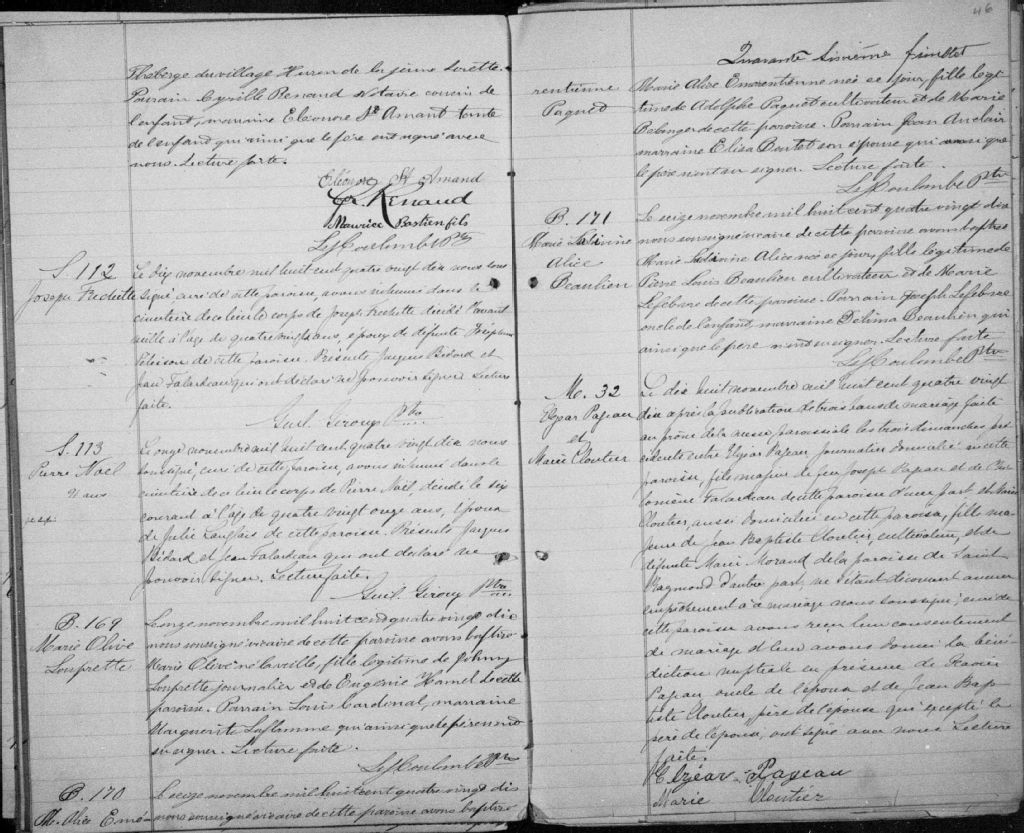 Theberge du village Huron de la jeune Lorette.
Parrain Cyrille Renaud Notaire cousin de
l'enfant, marraine Eleonore St Amant tante
de l'enfant qui ainsi que le père ont signé avec
nous. Lecture faite.
Eléonore St Amand
Cyr Renaud
Maurice Bastien fils
Les Coulombe Ptre
S. 112
Joseph Frechette
Le dix novembre mil huit cent quatre vingt dix nous sous
signé curé de cette paroisse, avons inhumé dans le
cimetière de ce lieu le corps de Joseph Frechette décédé l'avant
veille à l'age de quatre vingts ans, époux de defunte Josephine
de cette paroisse. Présents Jacques Bédard et
Jean Falardeau qui ont déclaré ne pouvoir signer Lecture
faite.
Guil. Giroux Ptre
S. 113
Pierre Noel
91 ans
Le onze novembre mil huit cent quatre vingt dix nous
soussigné, curé de cette paroisse, avons inhumé dans le
cimetière de ce lieu le corps de Pierre Noël, décédé le six
courant à l'age de quatre vingt onze ans, époux
de Julie Langlais de cette paroisse. Présents Jacques
Bédard et Jean Falardeau qui ont déclaré ne
pouvoir signer. Lecture faite.
Guil. Giroux Ptre
B. 169
Marie Olive
Souprette
Le onze novembre mil huit cent quatre vingt dix
nous soussigné vicaire de cette paroisse avons baptisé
Marie Olive née la veille, fille légitime de Johnny
Souprette journalier et de Eugenie Hamel de cette
paroisse. Parrain Louis Cardinal, marraine
Marguerite Laflamme qui ainsi que le père n'ont
su signer. Lecture faite.
Les Coulombe Ptre
B. 170
M. Alice Emé-
Le seize novembre mil huit cent quatre vingt dix
nous soussigné vicaire de cette paroisse avons baptisé
46
Quarante Sixième feuillet
rentienne
Paquet
Marie Alice Emérentienne née ce jour, fille légi-
time de Adolphe Paquet cultivateur et de Marie
Belanger de cette paroisse. Parrain Jean Auclair
marraine Elisa Boutet son épouse qui ainsi que
le père n'ont su signer. Lecture faite.
Les Coulombe Ptre
B. 171
Marie
Alice
Beaulieu
Le seize novembre mil huit cent quatre vingt dix
nous soussigné vicaire de cette paroisse avons baptisé
Marie Alice née ce jour, fille légitime de
Pierre Louis Beaulieu cultivateur et de Marie
Lefebvre de cette paroisse. Parrain Joseph Lefebvre
oncle de l'enfant, marraine Délima Beaulieu qui
ainsi que le père n'ont su signer. Lecture faite
Les Coulombe Ptre
M. 32
Elzéar Papeau
et
Marie Cloutier
Le dix huit novembre mil huit cent quatre vingt
dix après la publication de trois bans de mariage faite
au prône de la messe paroissiale les trois dimanches pré-
cédents entre Elzéar Papeau, journalier domicilié en cette
paroisse, fils majeur de feu Joseph Papeau et de Phi-
lomène Falardeau de cette paroisse d'une part, et Marie
Cloutier, aussi domiciliée en cette paroisse, fille ma-
jeure de Jean Baptiste Cloutier, cultivateur, et de
défunte Marie Morand de la paroisse de Saint
Raymond d'autre part, ne s'étant découvert aucun
empêchement à ce mariage nous soussigné, curé de
cette paroisse avons reçu leur consentement
de mariage et leur avons donné la béné
diction nuptiale en présence de Xavier
Papeau oncle de l'époux et de Jean Bap
tiste Cloutier, père de l'épouse qui excepté le
père de l'époux, ont signé avec nous Lecture
faite.
Elzéar Papeau
Marie Cloutier